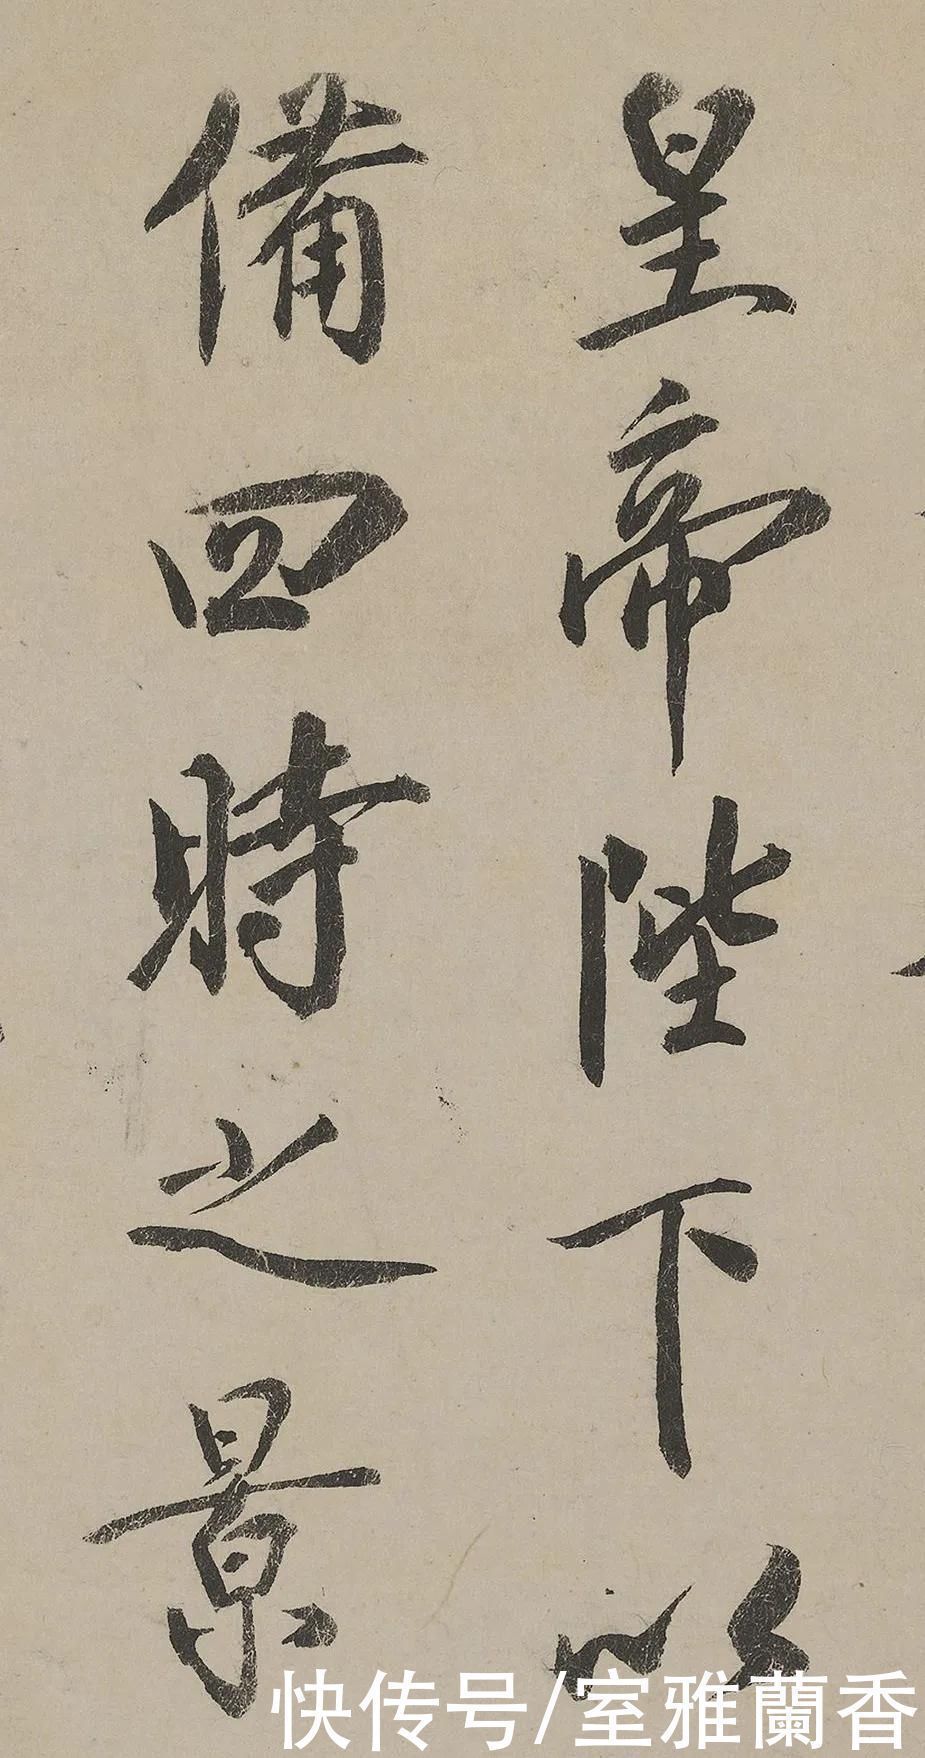 皇帝陛下以
備四時之景
快传号/室雅蘭香